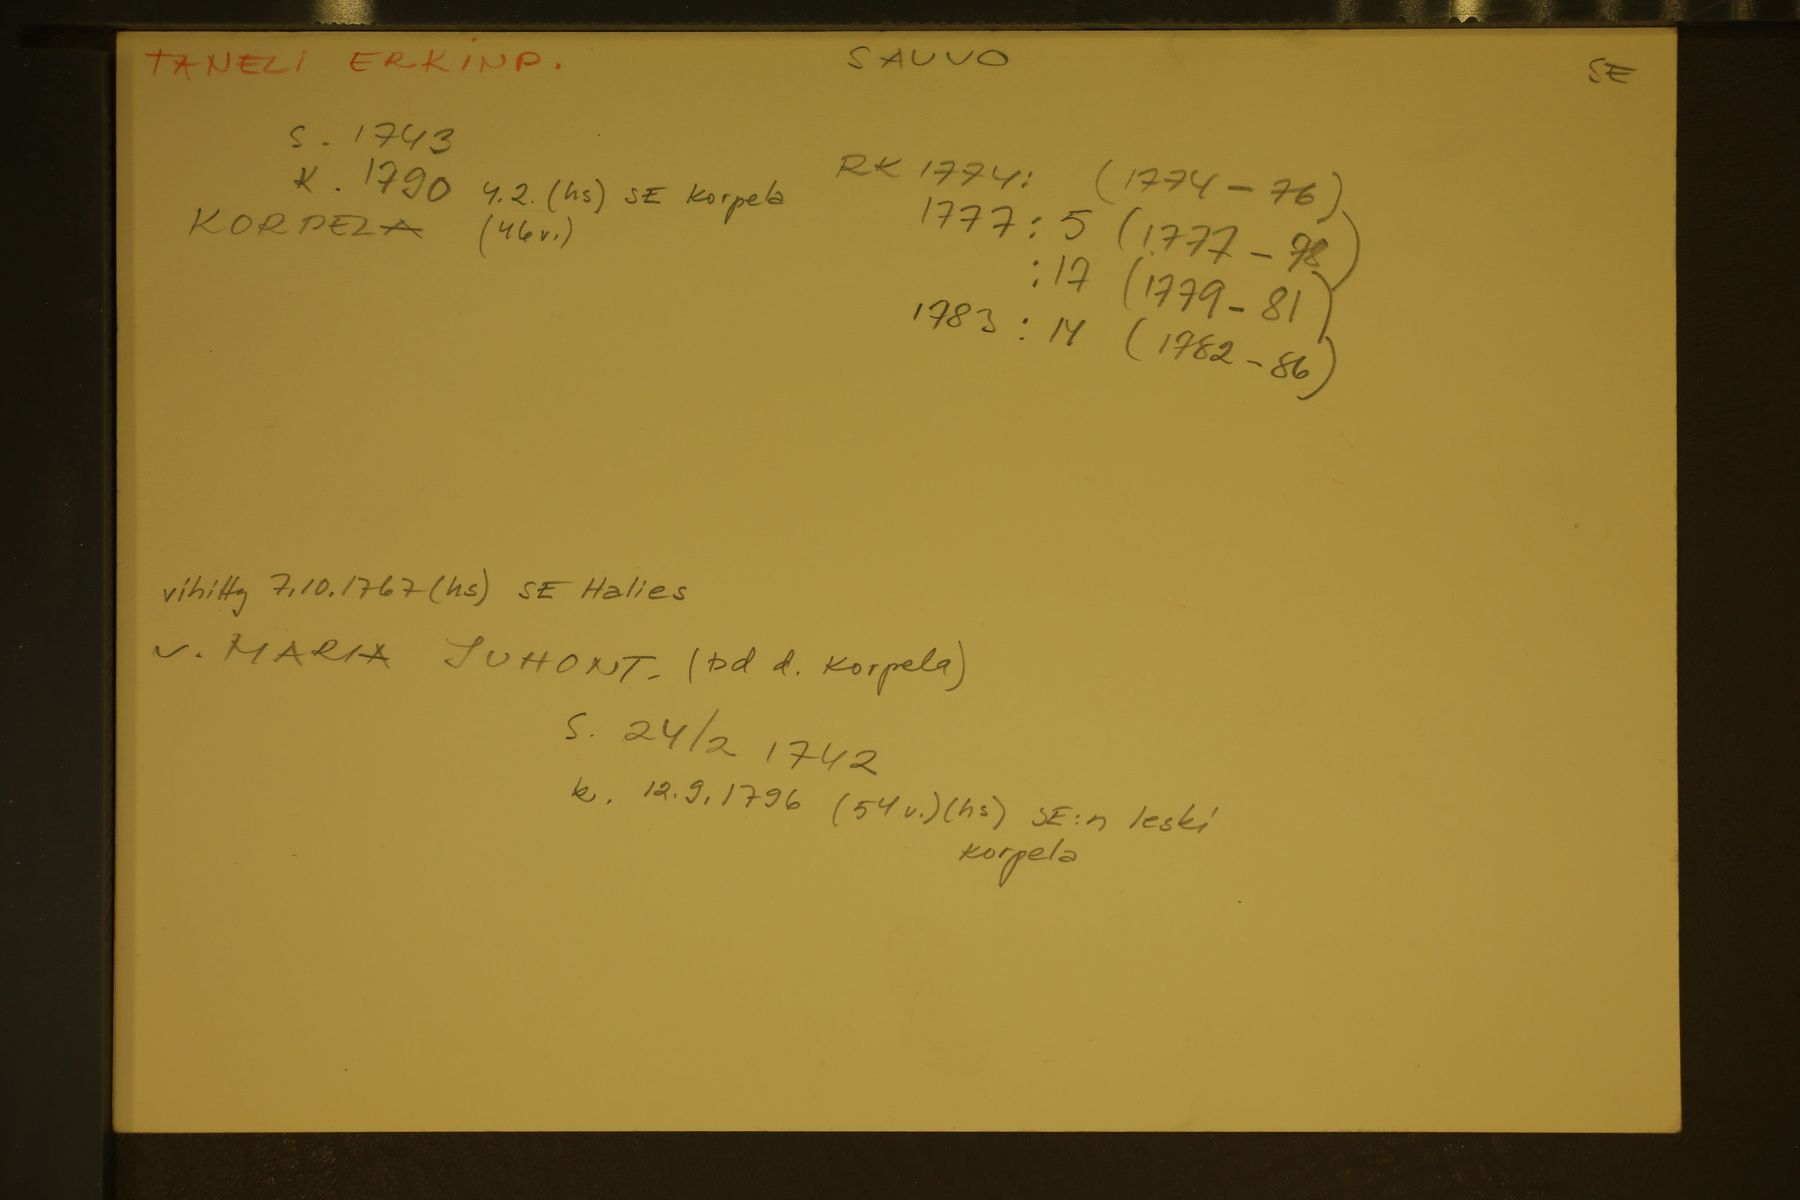 TANELI ERKINP. SAUVO SE
S. 1743
K. 1790 4.2. (hs) SE Korpela
KORPELA (46 v.)
RK 1774: (1774 - 76)
1777: 5 (1777 - 78)
:17 (1779 - 81)
1783: 14 (1782 - 86)
vihitty 7.10.1767 (hs) SE Halies
v. MARIA JUHONT. (bd d. Korpela)
S. 24/2 1742
k. 12.9.1796 (54 v.) (hs) SE:n leski
Korpela